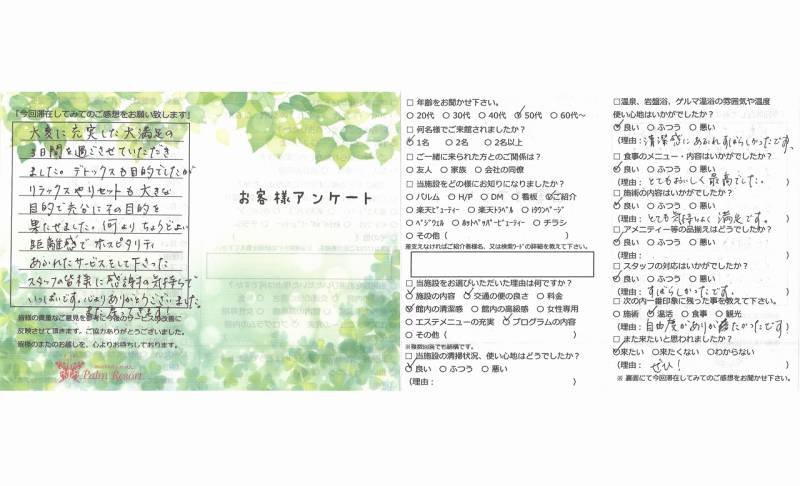 「今回滞在してみてのご感想をお願い致します」
大変に充実した大満足の
3日間を過ごさせていただき
ました。デトックスも目的でしたが
リラックスやリセットも大きな
目的で充分にその目的を
果たせました。何よりちょうどよい
距離感でホスピタリティ
あふれたサービスをして下さった
スタッフの皆様に感謝の気持ちで
いっぱいです。ありがとうございました。
また来ます!
皆様の貴重なご意見を参考に今後のサービスの改善に
反映させて頂きます。ご協力ありがとうございました。
皆様のまたのお越しを、心よりお待ちしております。
Palm Resort
お客様アンケート
□ 年齢をお聞かせ下さい。
○ 20代 ○ 30代 ○ 40代 ○ 50代 ○ 60代～
□ 何名様でご来館されましたか?
○ 1名 ○ 2名 ○ 2名以上
□ ご一緒に来られた方とのご関係は?
○ 友人 ○ 家族 ○ 会社の同僚
□ 当施設をどの様にお知りになりましたか?
○ パルム ○ H/P ○ DM ○ 看板 ○ ご紹介
○ 楽天ビューティー ○ 楽天トラベル ○ iタウンページ
○ ベジウェル ○ ホットペッパービューティー ○ チラシ
○ その他 ( )
※支えなければご紹介者様名、又は検索ワードの詳細を教えて下さい。
□ 当施設をお選びいただいた理由は何ですか?
○ 施設の内容 ○ 交通の便の良さ ○ 料金
○ 館内の清潔感 ○ 館内の高級感 ○ 女性専用
○ エステメニューの充実 ○ プログラムの内容
○ その他 ( )
※複数回答でも結構です。
□ 当施設の清掃状況、使い心地はどうでしたか?
○ 良い ○ ふつう ○ 悪い
(理由: )
□ 温泉、岩盤浴、ゲルマ温浴の雰囲気や温度
使い心地はいかがでしたか?
○ 良い ○ ふつう ○ 悪い
(理由: 清潔感にあふれすばらしかったです。
□ 食事のメニュー・内容はいかがでしたか?
○ 良い ○ ふつう ○ 悪い
(理由: とてもおいしく最高でした。
□ 施術の内容はいかがでしたか?
○ 良い ○ ふつう ○ 悪い
(理由: とても気持よく満足です。
□ アメニティー等の品揃えはどうでしたか?
○ 良い ○ ふつう ○ 悪い
(理由: )
□ スタッフの対応はいかがでしたか?
○ 良い ○ ふつう ○ 悪い
(理由: すばらしかったです。
□ 次の内一番印象に残った事を教えて下さい。
○ 施術 ○ 温活 ○ 食事 ○ 観光
(理由: 自由度がありが難たかったです)
□ また来たいと思われましたか?
○ 来たい ○ 来たくない ○ わからない
(理由: ぜひ! )
※ 裏面にて今回滞在してみてのご感想をお聞かせ下さい。